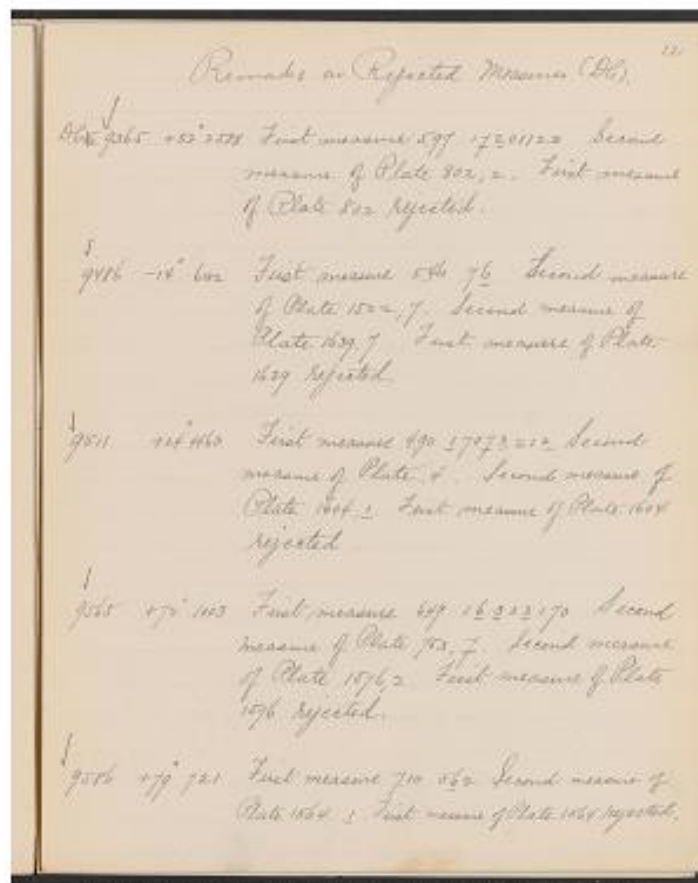 121
Remarks on Rejected Measures (DC).
DC 9365 +52° 2588 First measure 597 Second
measure of Plate 802, 2. First measure
of Plate 802 rejected.
9486 -14° 602 First measure 546 76 Second measure
of Plate 1522, 7. Second measure of
Plate 1639, 7 First measure of Plate
1639 rejected.
9511 First measure 490 Second
measure of Plate, 4. Second measure of
Plate 1604 1 First measure of Plate 1604
rejected
9565 First measure 649 Second
measure of Plate 753, 7. Second measure
of Plate 1576, 2 First measure of Plate
1576 rejected.
9586 +79° 721 First measure 710 562 Second measure of
Plate 1564. 1 First measure of Plate 1564 rejected.